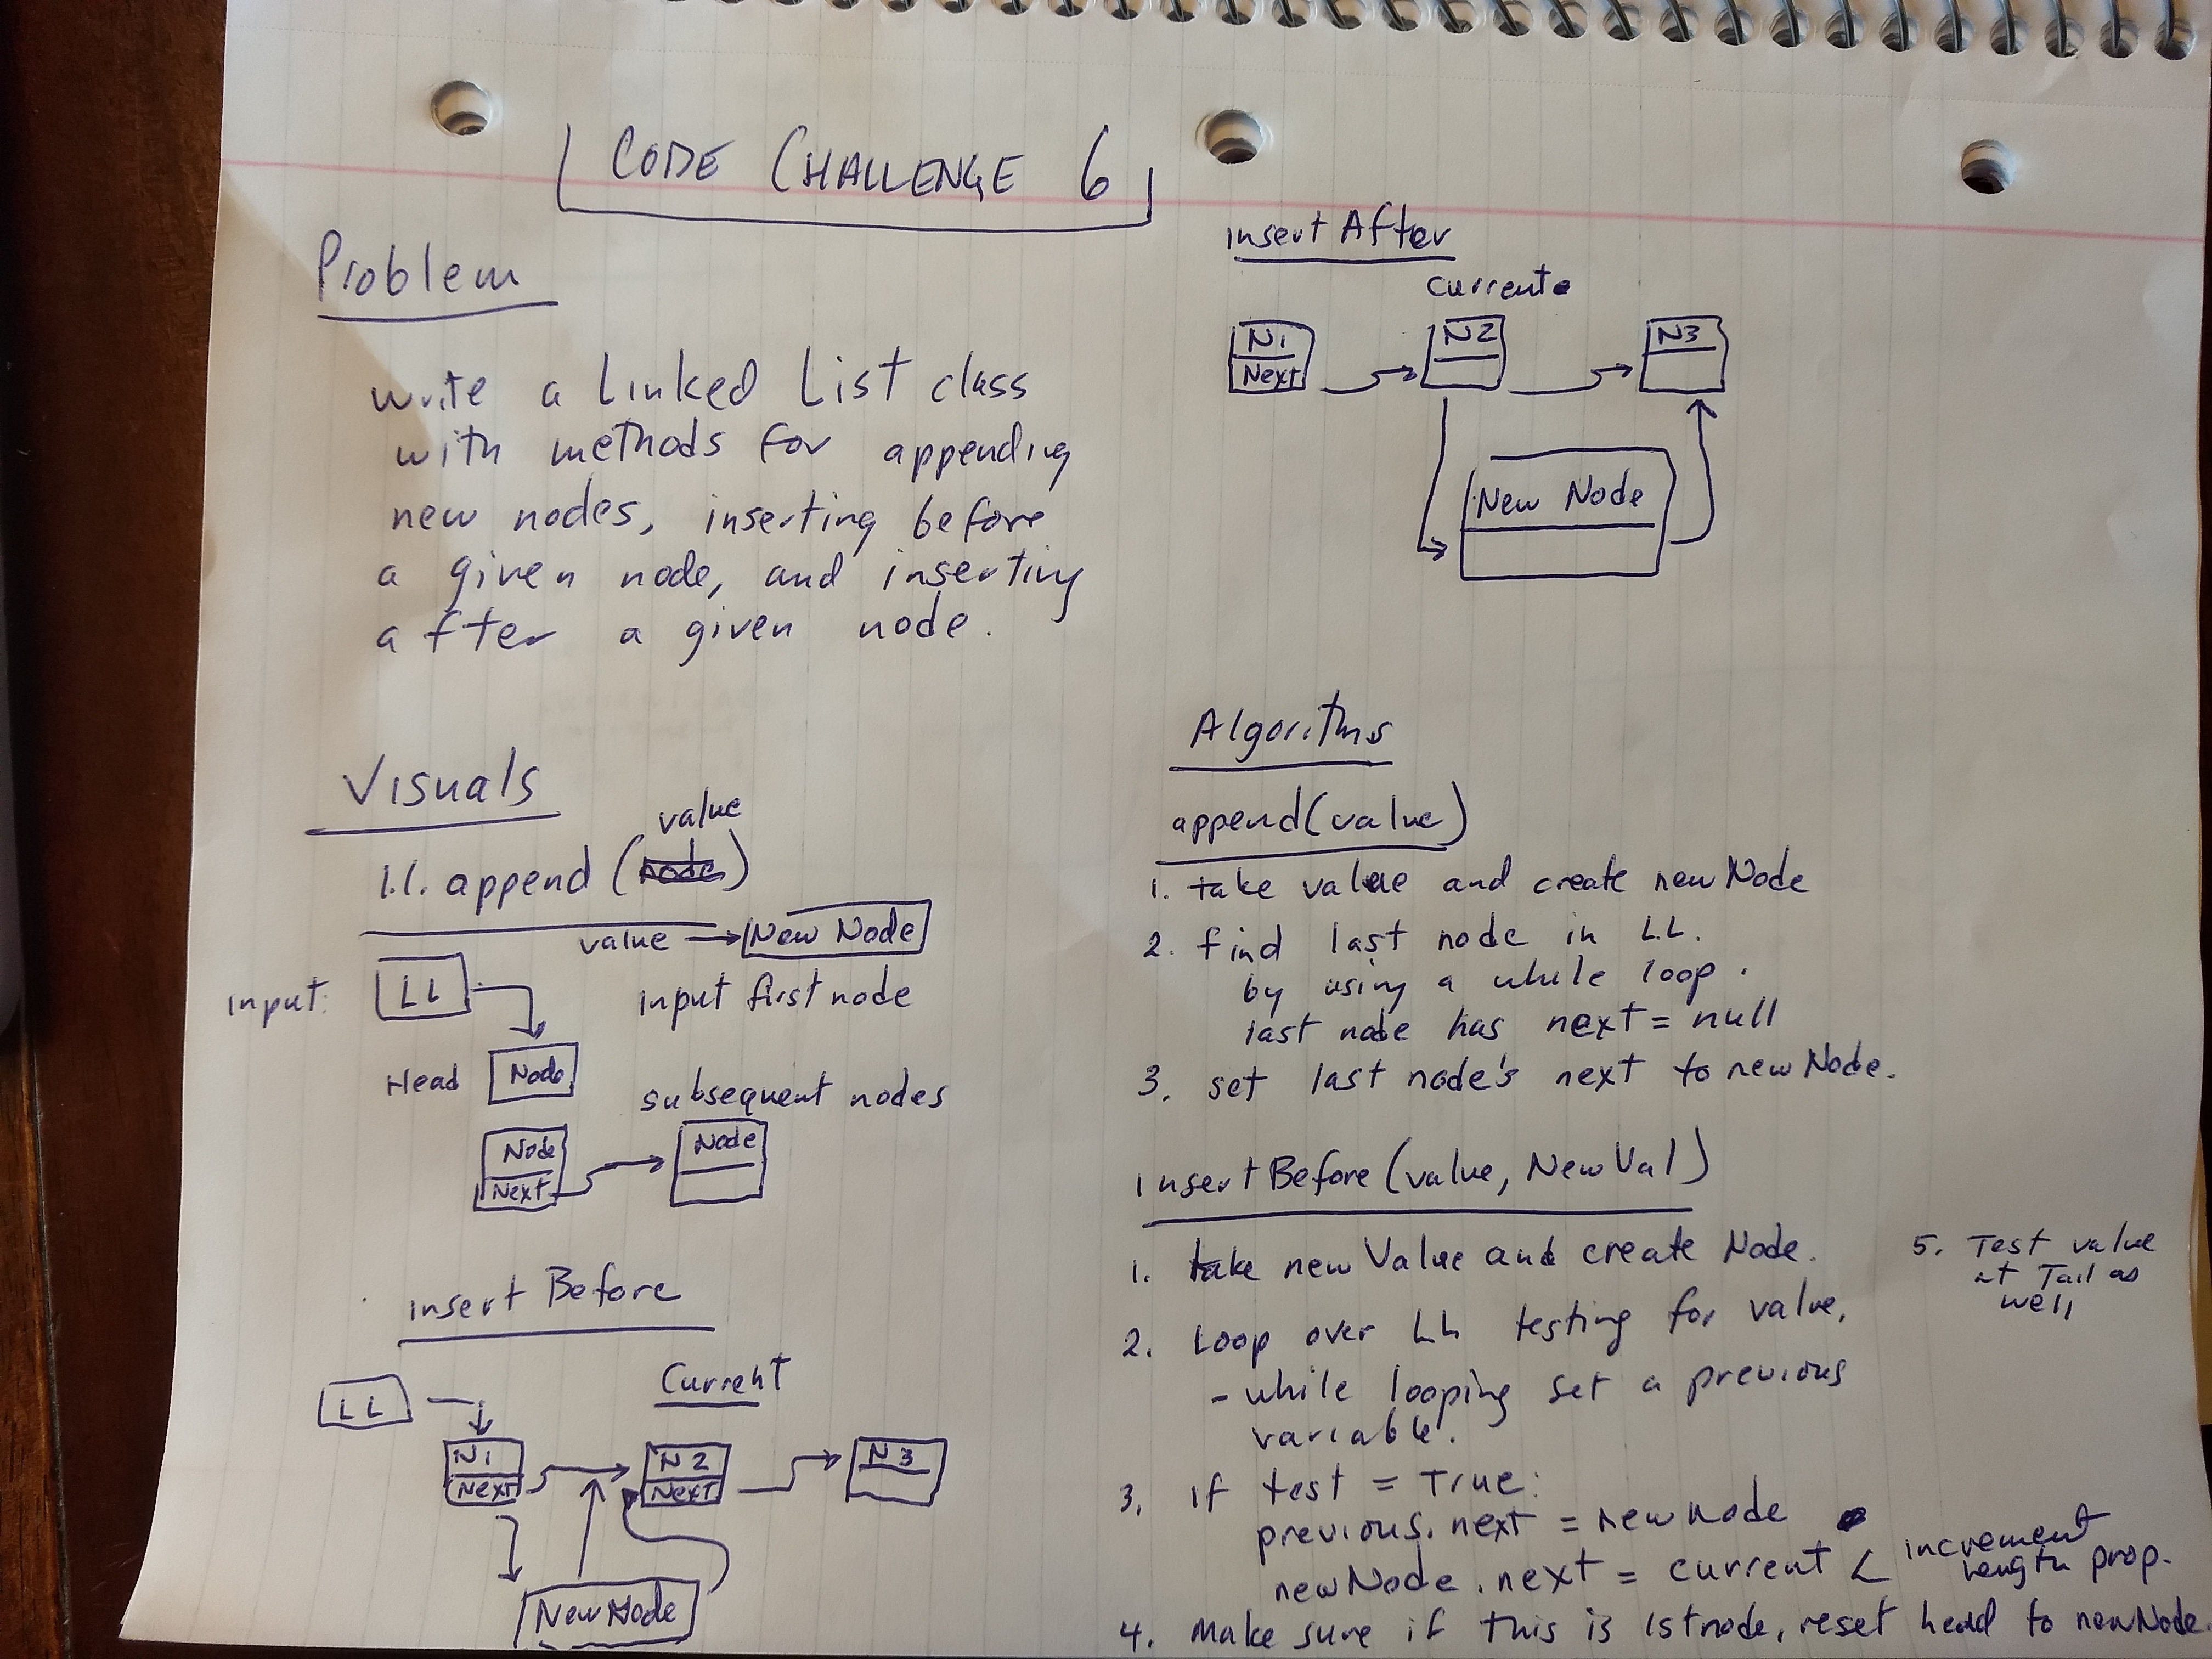 CODE CHALLENGE 6
Problem
write a Linked List class
with methods for appending
new nodes, inserting before
a given node, and inserting
after a given node.
Visuals
value
l.l. append (node)
value → New Node
input: LL
input first node
Head Node
subsequent nodes
Node Node
Next
insert Before
Current
LL
N1 N2 N3
Next Next
New Node
insert After
Current
N1 N2 N3
Next
New Node
Algorithms
append(value)
1. take value and create newNode
2. find last node in LL.
by using a while loop.
last node has next = null
3. set last node's next to newNode.
insertBefore(value, NewVal)
1. take newValue and create Node.
2. Loop over LL testing for value,
- while looping set a previous
variable.
3. if test = True:
previous.next = newnode
newNode.next = current < increment
length prop.
4. Make sure if this is 1st node, reset head to newNode.
5. Test value
at Tail as
well